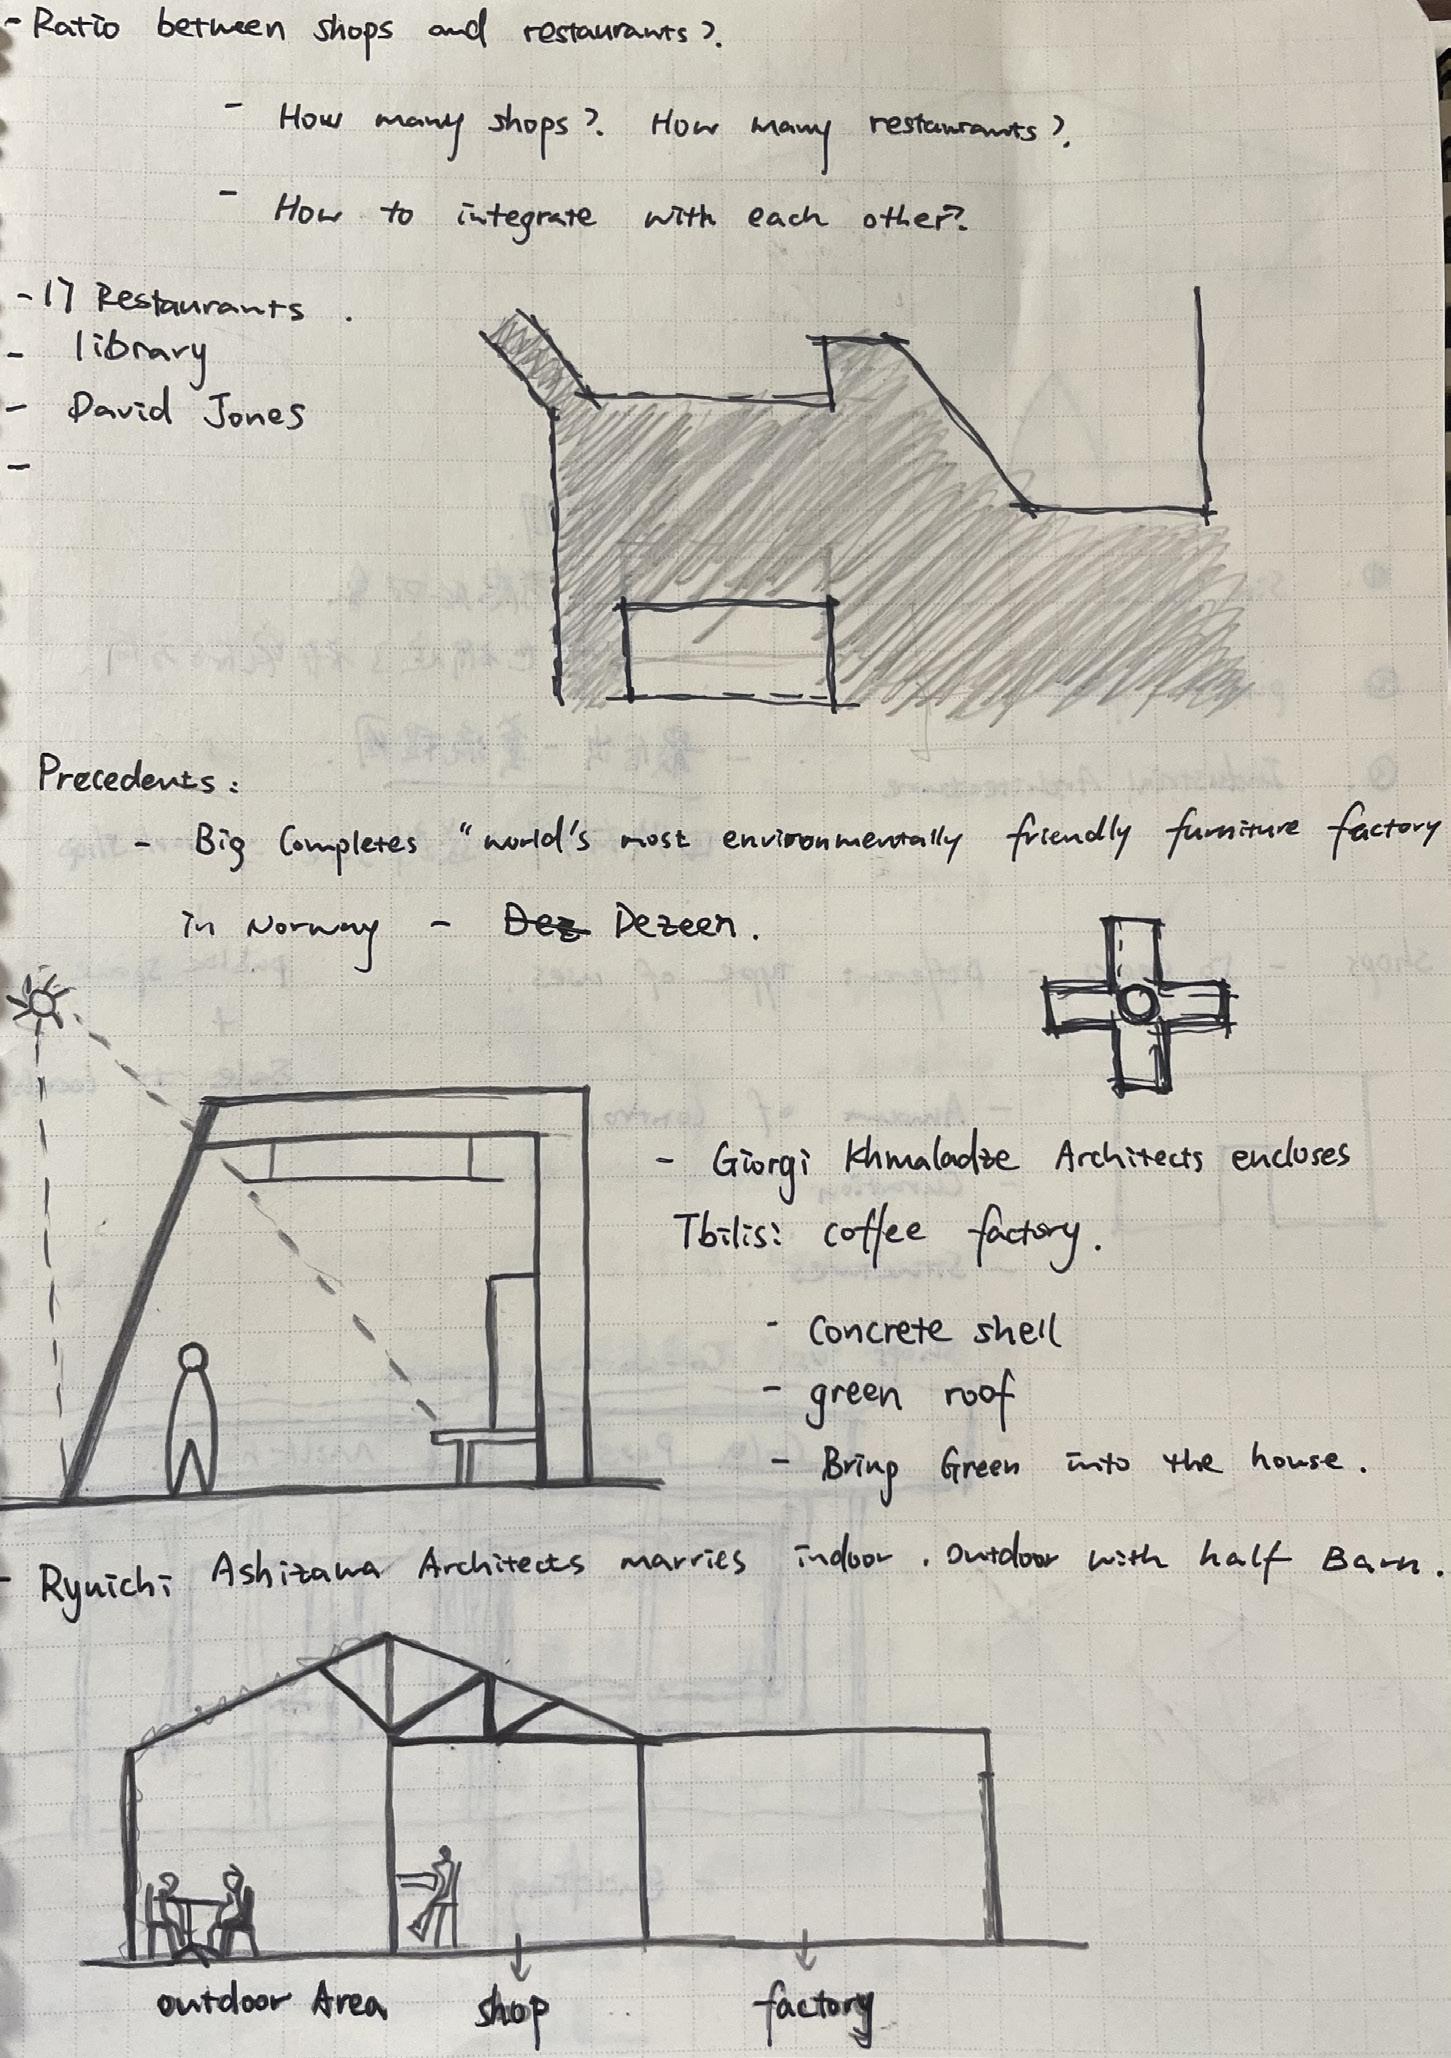 - Ratio between shops and restaurants?.
- How many shops?. How many restaurants?.
- How to integrate with each other?.
- 17 Restaurants.
- library
- David Jones
-
Precedents:
- Big Completes "world's most environmentally friendly furniture factory
in Norway - Dez Dezeen.
- Giorgi Khmaladze Architects encloses
Tbilisi coffee factory.
- Concrete shell
- green roof
- Bring Green into the house.
- Ryuichi Ashizawa Architects marries indoor. outdoor with half Barn.
outdoor Area
shop
factory